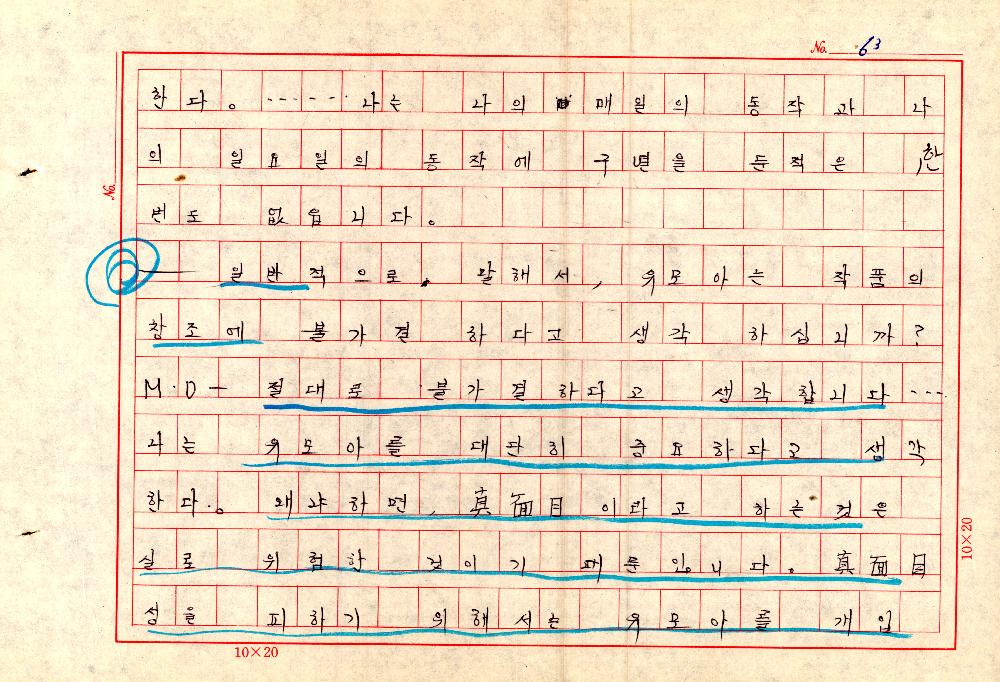 No. 63
한다。 ······ 나는 나의 매일의 동작과 나
의 일요일의 동작에 구별을 둔적은 한
번도 없읍니다。
No.
— 일반적으로. 말해서, 유모아는 작품의
창조에 불가결 하다고 생각 하십니까?
M·D— 절대로 불가결하다고 생각합니다 ···
나는 유모아를 대단히 중요하다고 생각
한다.。 왜냐하면, 真面目이라고 하는것은
실로 위험한 것이기 때문입니다。 真面目
성을 피하기 위해서는 유모아를 개입
10×20
10×20